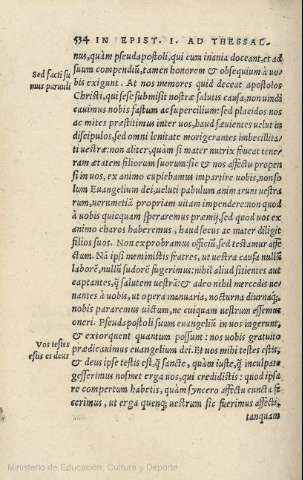 534 IN EPIST. I. AD THESSAL
nus, quàm pseudapostoli, qui cum inania doceant, et ad
suum compendiũ, tamen honorem & obsequium à uo
bis exigunt. At nos memores quid deceat apostolos
Christi, qui sese submisit nostræ salutis causa, non uindi
cauimus nobis fastum ac supercilium: sed placidos nos
ac mites præstitimus inter uos, haud sæuientes uelut in
discipulos, sed omni lenitate morigerantes imbecillita
ti uestræ: non aliter, quàm si mater nutrix fiuecat tene
ram ætatem filiorum suorum: sic & nos affectu propen
si in uos, ex animo cupiebamus impartire uobis, non so
lum Euangelium dei, ueluti pabulum animarum uestra
rum, uerumetiã propriam uitam impendere: non quod
à uobis quicquam speraremus præmij, sed quod uos ex
animo charos haberemus, haud secus ac mater diligit
filios suos. Non exprobramus officiũ, sed testamur affe
ctum. Nã ipsi meministis fratres, ut uestra causa nullũ
laborẽ, nullũ sudorẽ fugerimus: nihil aliud sitientes aut
captantes, q̃ salutem uestrã: & adeo nihil mercedis ue
nantes à uobis, ut opera manuaria, nocturna diurnaq;
nobis pararemus uictum, ne cuiquam uestrum essemus
oneri. Pseudapostoli suum euangeliũ in uos ingerunt,
& extorquent quantum possunt: nos uobis gratuito
prædicauimus euangelium dei. Et uos mihi testes estis,
& deus ipse testis est, q̃ sancte, quàm iuste, q̃ inculpate
gesserimus nosmet erga uos, qui credidistis: quod ipsa
re compertum habetis, quàm syncero affectu cuncta fe
cerimus, ut erga quenq; uestrum sic fuerimus affecti,
tanquam
Sed facti su
mus paruuli
Vos testes
estis et deus
Ministerio de Educación, Cultura y Deporte